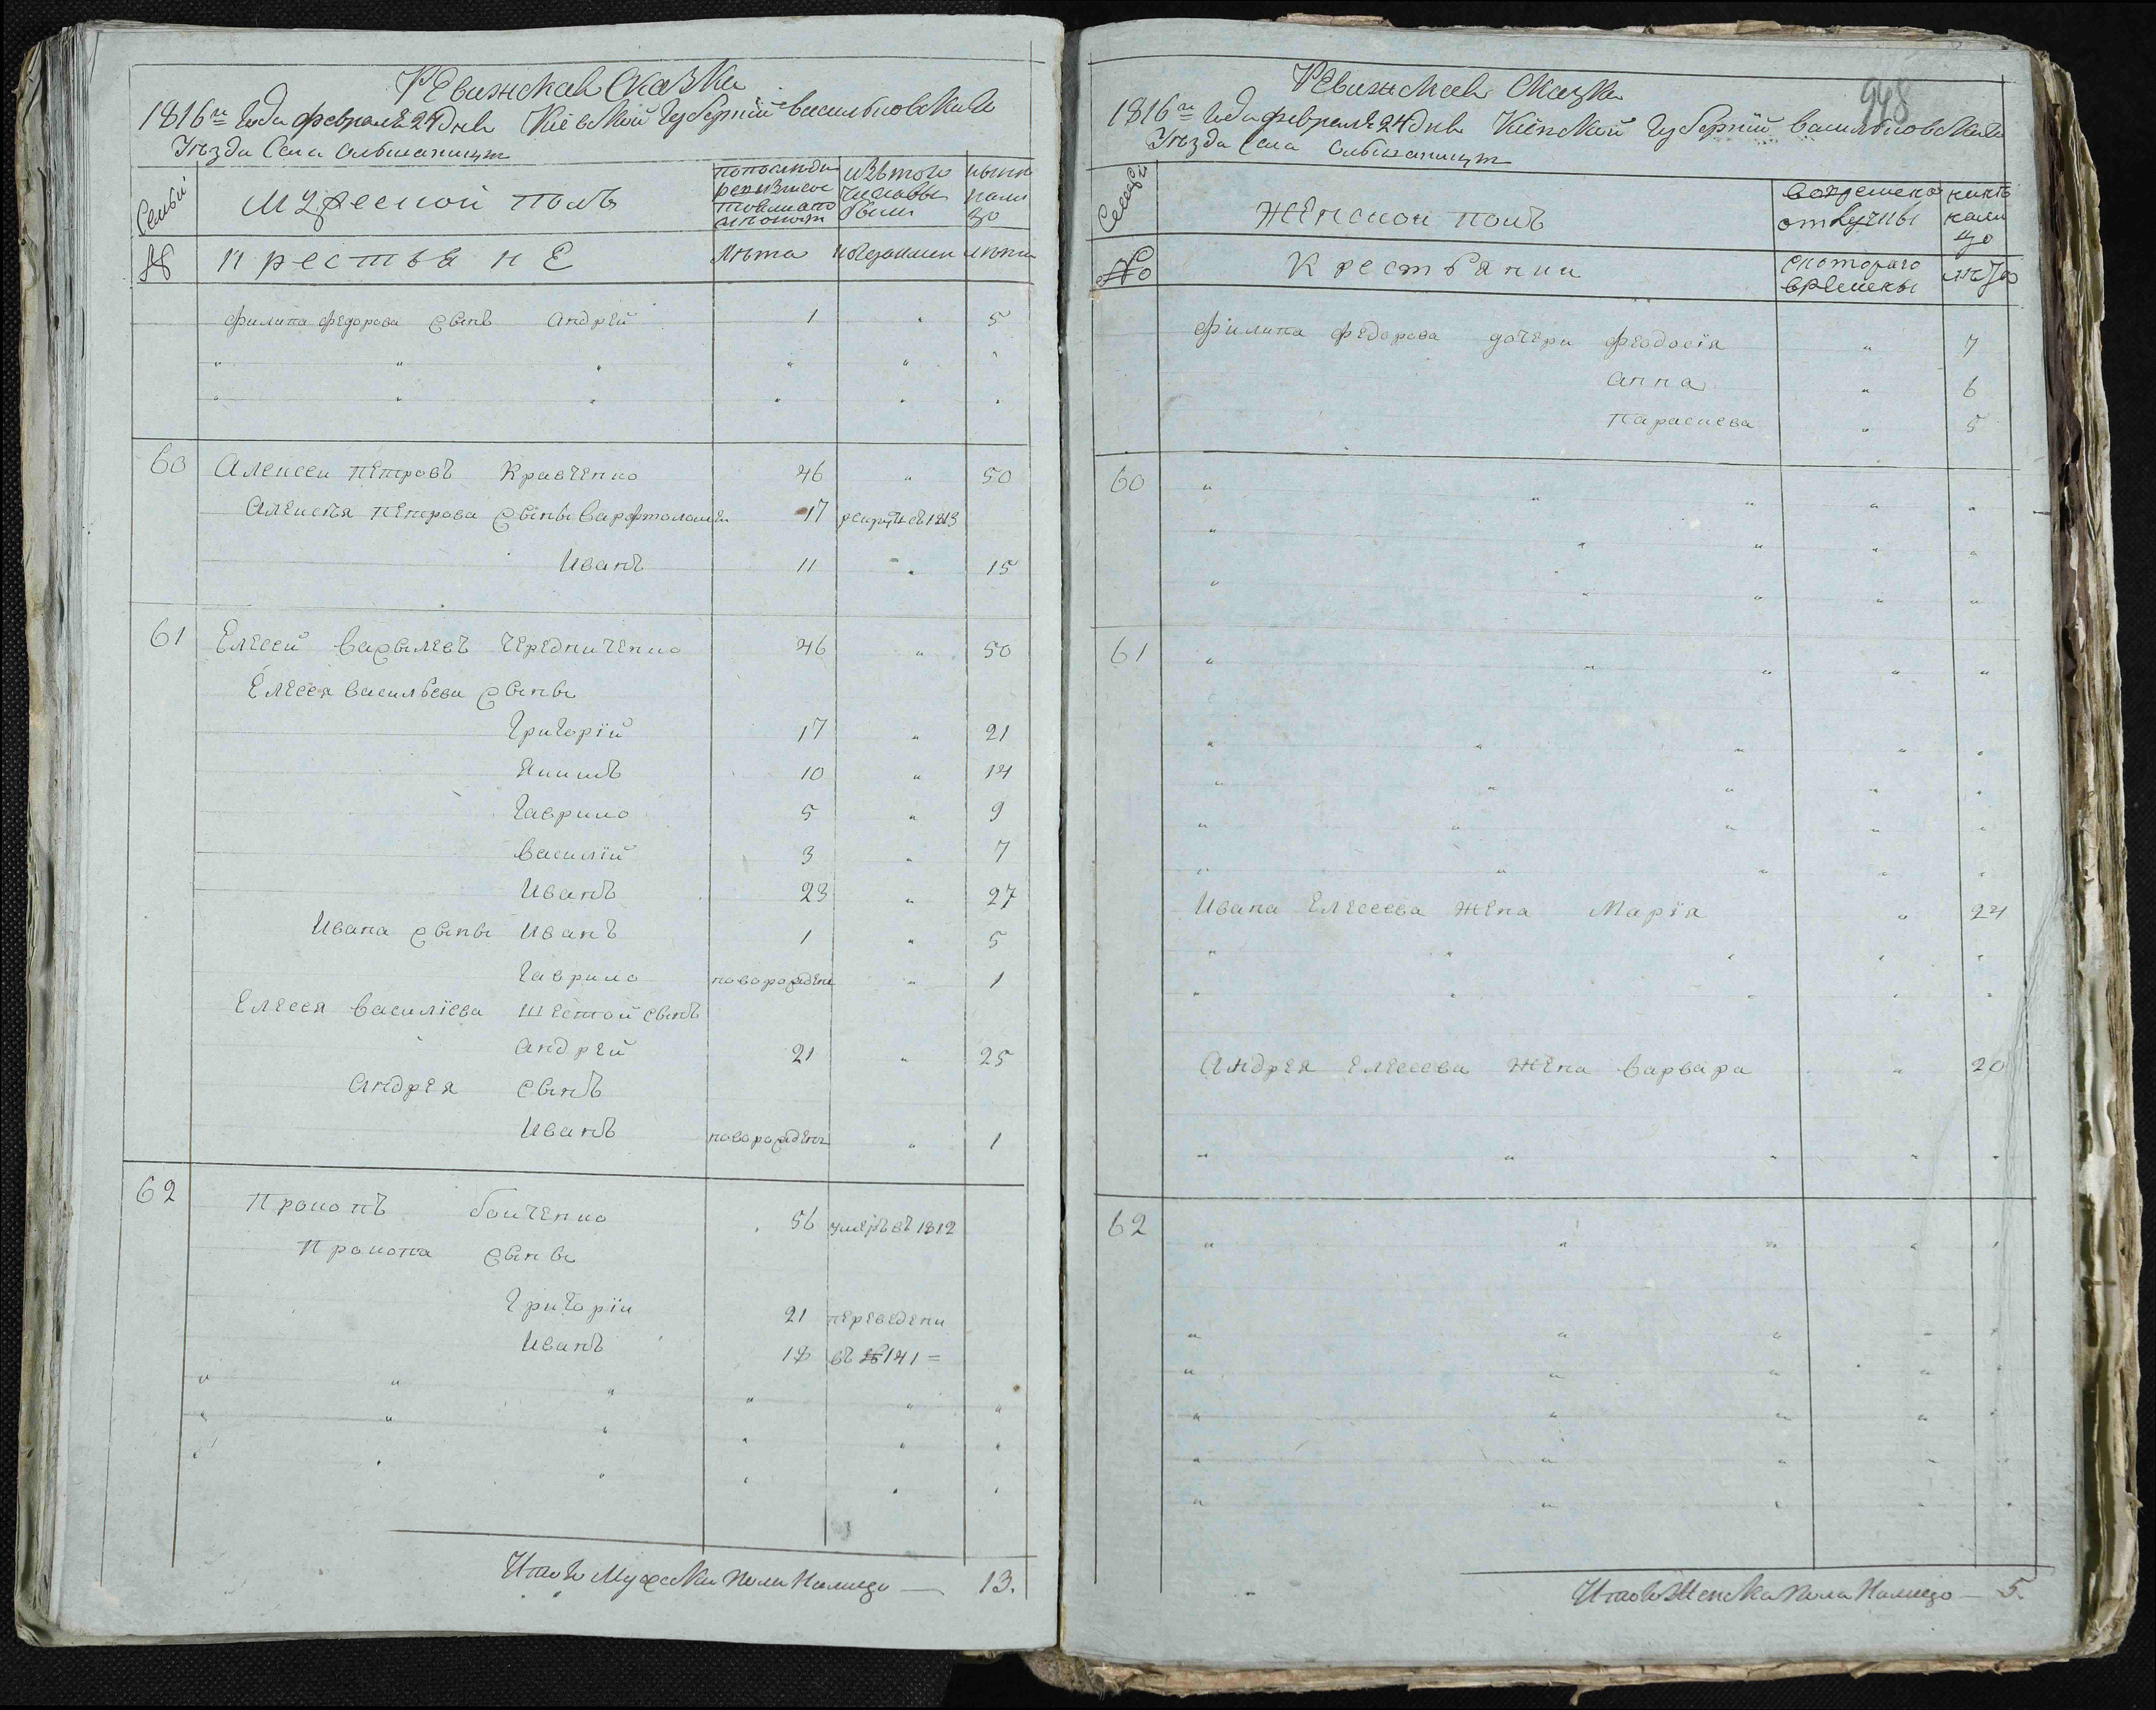 Ревижская Сказка
1816го Года февраля 24 дня Кіевской Губерніи васильковскаго
Уѣзда Села Ольшаници
Семьи
Мужеской полъ
по последн
ревизіи
состояло
изътого
числавы
было
нынѣ
нали
цо
№
крестьянЕ
Лѣта
лѣта
филипа федорова сынъ андрей 1 " 5
" " " " " "
" " " " " "
60 Алексеи петровъ Кравченко 46 " 50
Алексѣя петрова сыны варфтоломеи 17 рекрут въ 1813
Иванъ 11 " 15
61 Елесей васылевъ чередниченко 46 " 50
Елесея васильева сыны
Григорій 17 " 21
Якимъ 10 " 14
Гаврило 5 " 9
василій 3 " 7
Иванъ 23 " 27
Ивана сыны Иванъ 1 " 5
Гаврило новорожденъ " 1
Елесея василіева шестой сынъ
андрей 21 " 25
андрея сынъ
Иванъ новорожденъ " 1
62 Прокопъ бойченко 56 умеръ въ 1812
Прокопа сыны
Григоріи 21 переведени
Иванъ 18 въ № 141 =
" " " " " "
" " " " " "
" " " " " "
Итого Мужеска пола налицо — 13.
948
Ревижская Сказка
1816го Года февраля 24 дня Кіевской Губерніи васильковскаго
Уѣзда Села Ольшаници
Семьи
Женской полъ
вовремено
отлучкы
нинѣ
нали
цо
№
Крестьянки
скотораго
времены
лѣта
филипа федорова дочери феодосія " 7
анна " 6
Параскева " 5
60 " " " " "
" " " " "
" " " " "
61 " " " " "
" " " " "
" " " " "
" " " " "
" " " " "
Ивана елесеева жена Марія " 24
" " " " "
" " " " "
андрея елесеева жена варвара " 20
" " " " "
62 " " " " "
" " " " "
" " " " "
" " " " "
" " " " "
" " " " "
Итого Женска пола налицо — 5.